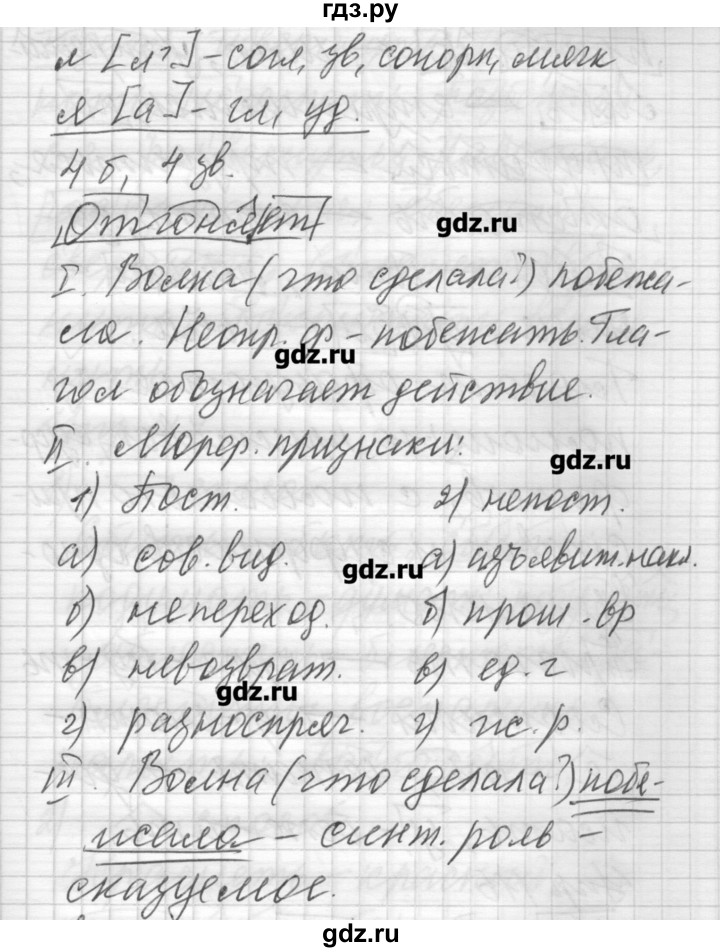 гдз.ру
л [л'] - согл, зв, сонорн, мягк
я [а] - гл, уд.
4 б, 4 зв.
Отгоняет
gdz.ru
I. Волна (что сделала?) побежа-
ла. Неопр. ф - побежать. Гла-
gdz.ru
гол обозначает действие.
II. Морф. признаки:
gdz.ru
1) Пост. 2) непост.
а) сов. вид. а) изъявит. накл.
gdz.ru
б) непереход. б) прош. вр
в) невозврат. в) ед. г
gdz.ru
г) разноспряг. г) ж. р.
III. Волна (что сделала?) побе-
жала - синт. роль -
сказуемое.
gdz.ru